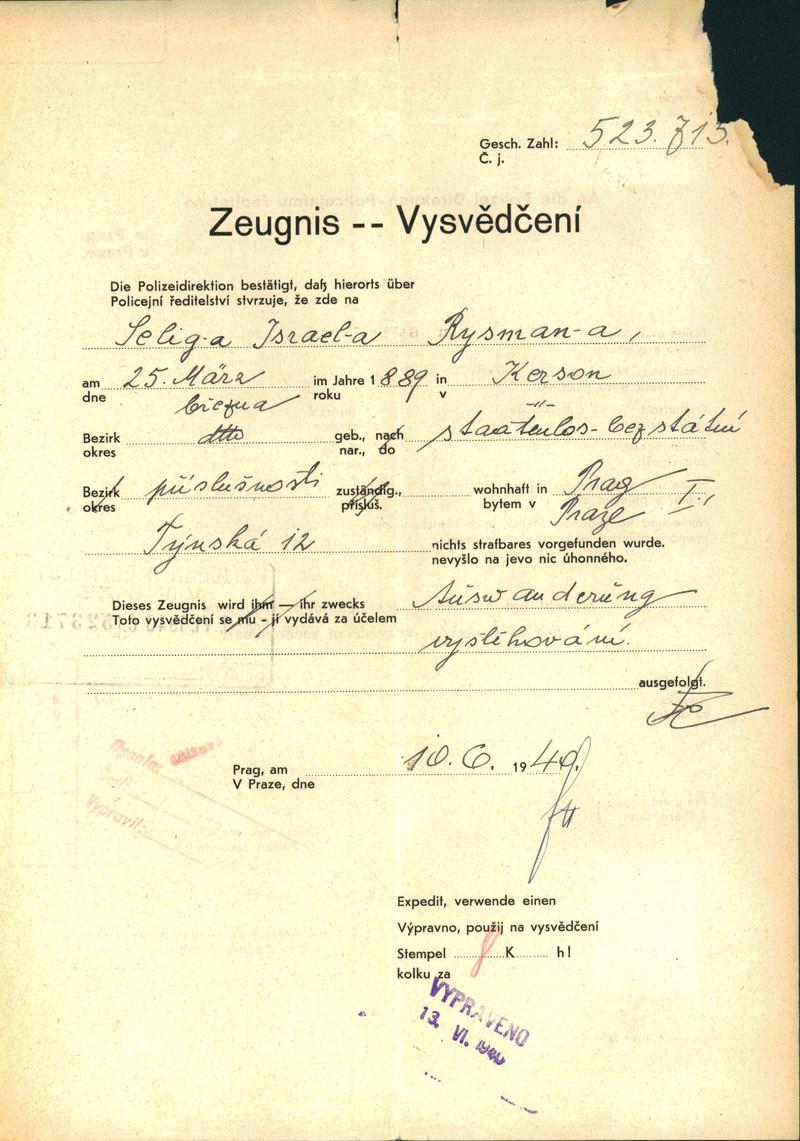 Gesch. Zahl: 523.713.
Č. j.
Zeugnis -- Vysvědčení
Die Polizeidirektion bestätigt, daß hierorts über
Policejní ředitelství stvrzuje, že zde na
Selig-a Israel-a Rysman-a,
am 25. März im Jahre 1889 in Kerson
dne března roku v
Bezirk dtto geb., nach staatenlos-bez státní
okres nar., do
Bezirk příslušnosti zuständig., wohnhaft in Prag I.,
okres příslúš. bytem v Praze
Týnská 12 nichts strafbares vorgefunden wurde.
nevyšlo na jevo nic úhonného.
Dieses Zeugnis wird ihm — ihr zwecks Auswanderung
Toto vysvědčení se mu - jí vydává za účelem
vystěhování.
ausgefolgt.
Prag, am 10.6. 1940.
V Praze, dne
Expedit, verwende einen
Výpravno, použij na vysvědčení
Stempel 8 K h!
kolku za
VYPRAVENO
13. VI. 1940